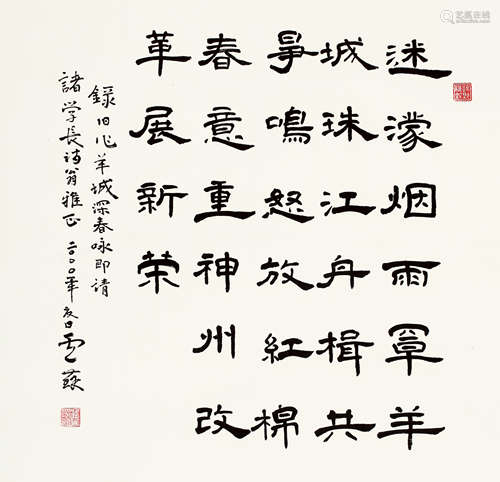 迷濛烟雨罩羊
城珠江舟楫共
爭鳴怒放紅棉
春意重神州改
革展新荣
錄旧作羊城深春咏即请
諸学長诗翁雅正 二〇〇〇年夏日